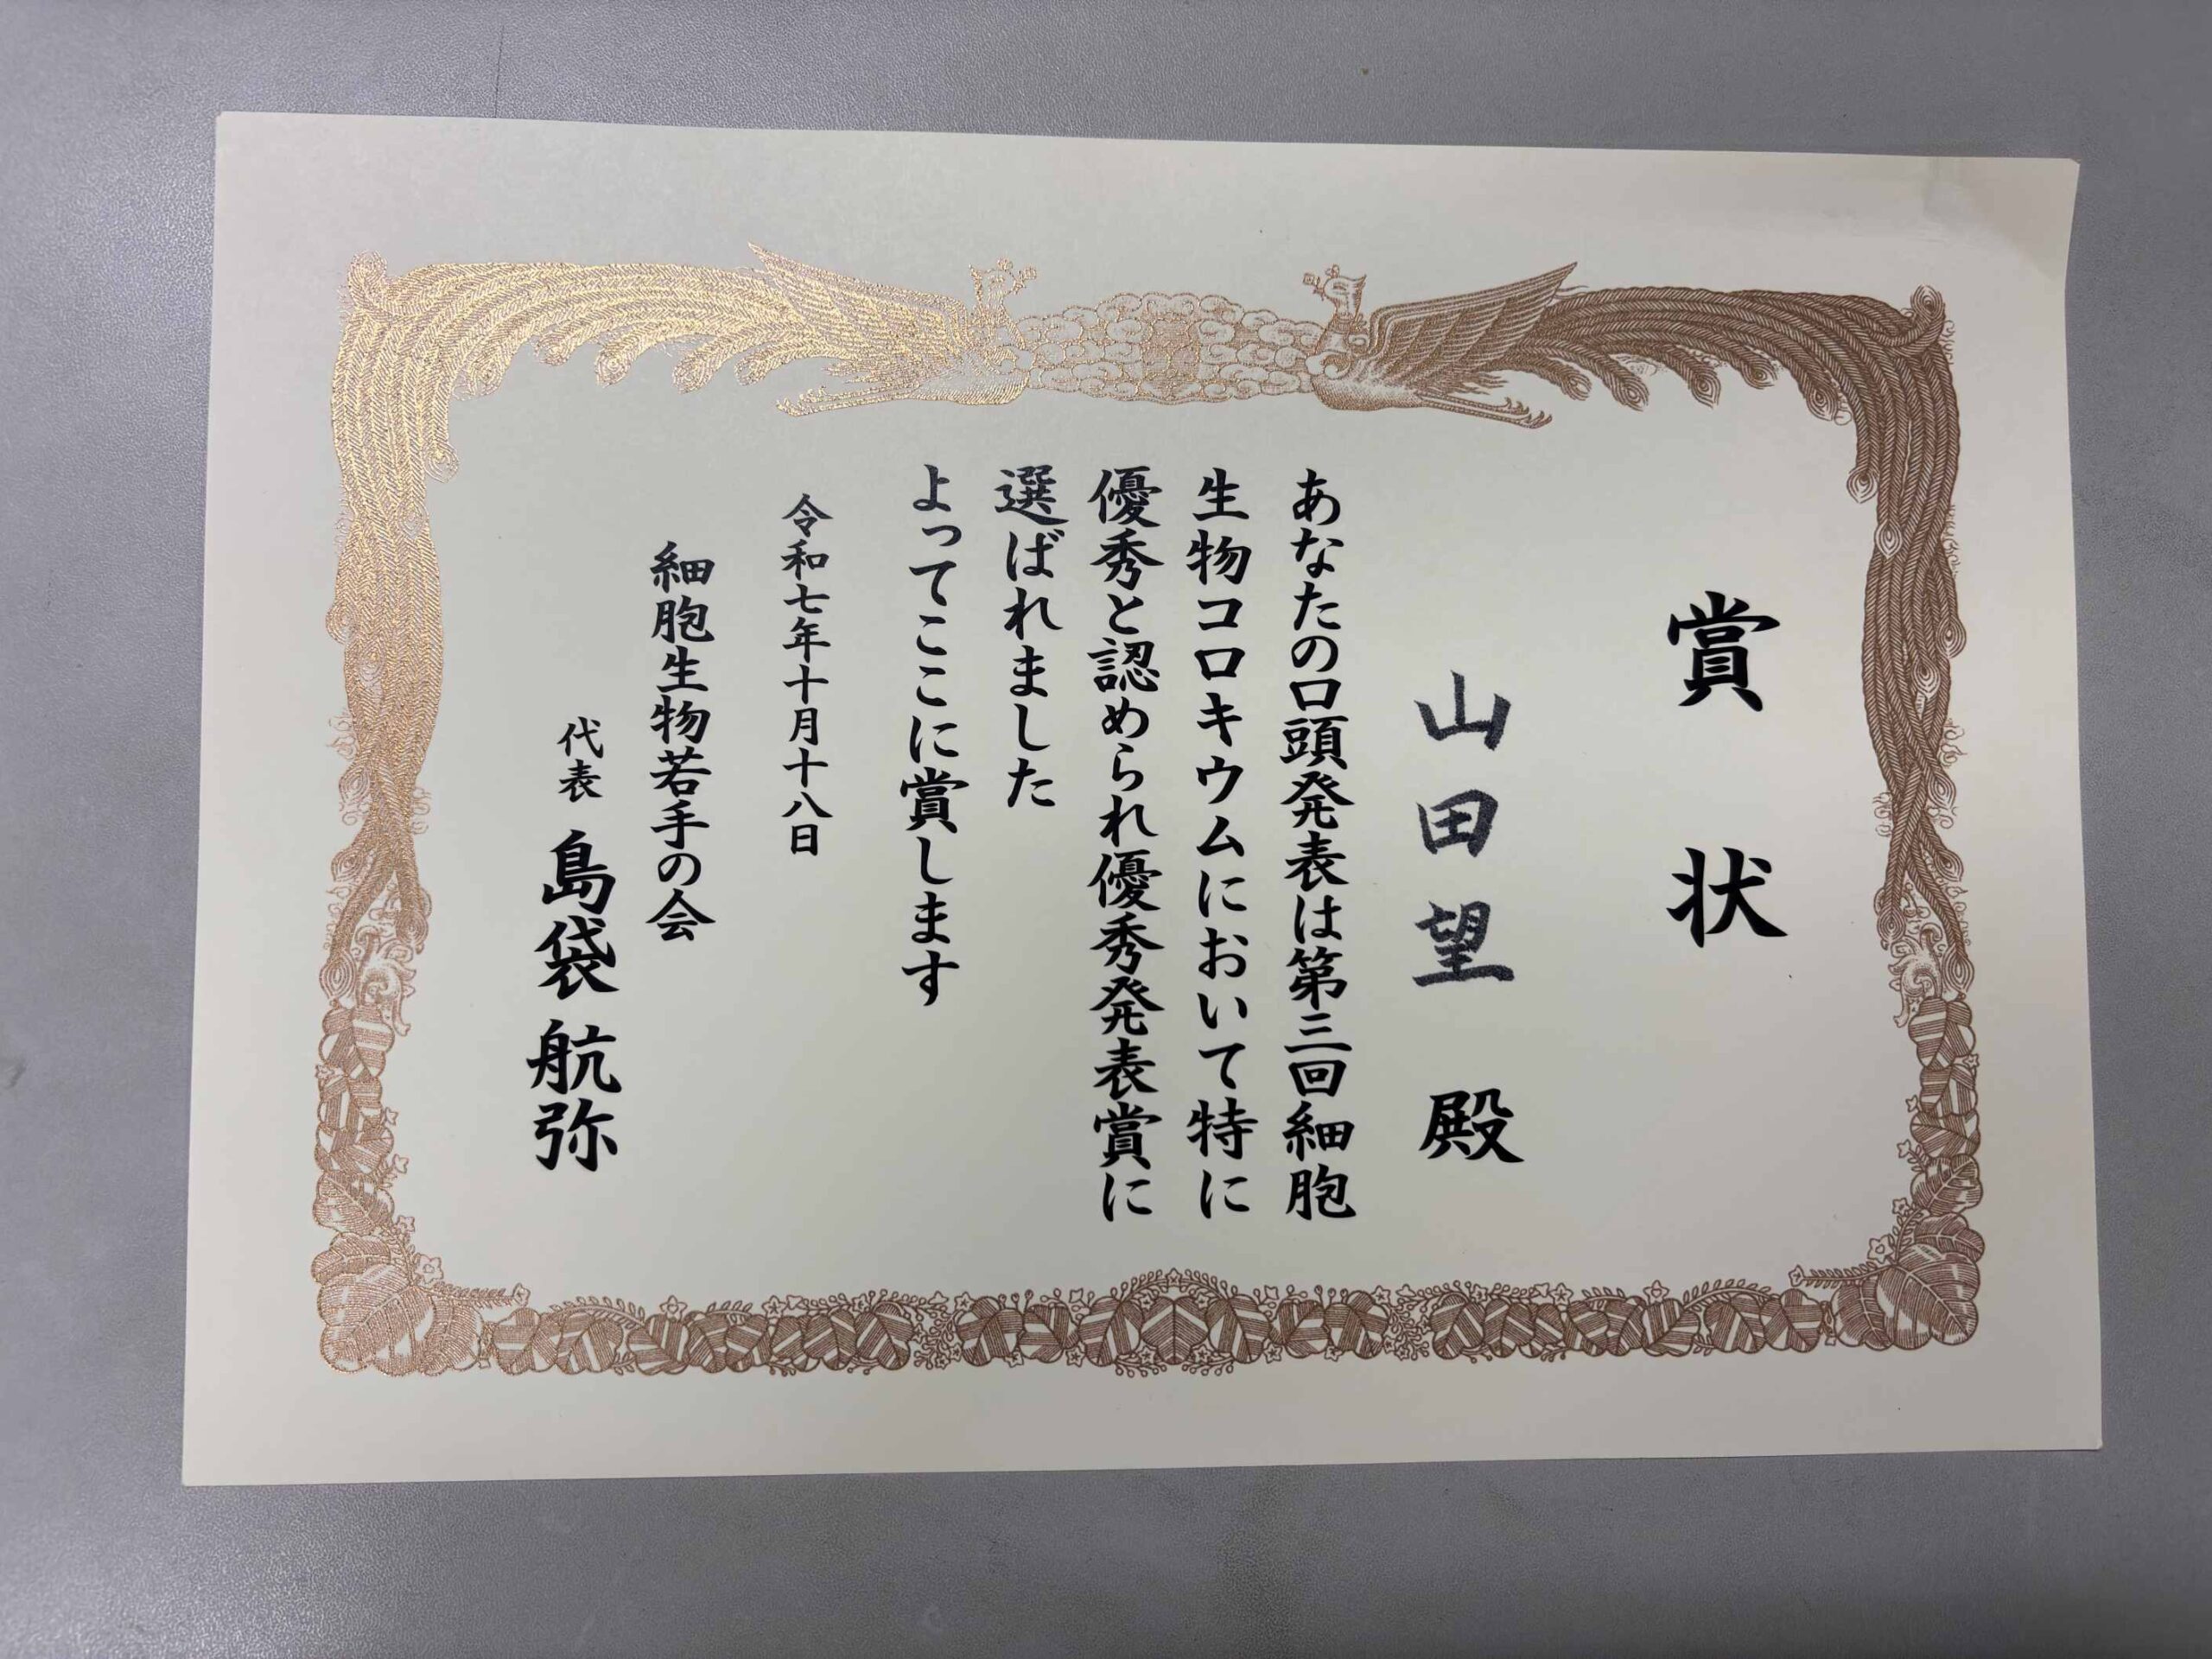 賞状
山田望 殿
あなたの口頭発表は第三回細胞
生物コロキウムにおいて特に
優秀と認められ優秀発表賞に
選ばれました
よってここに賞します
令和七年十月十八日
細胞生物若手の会
代表 島袋航弥